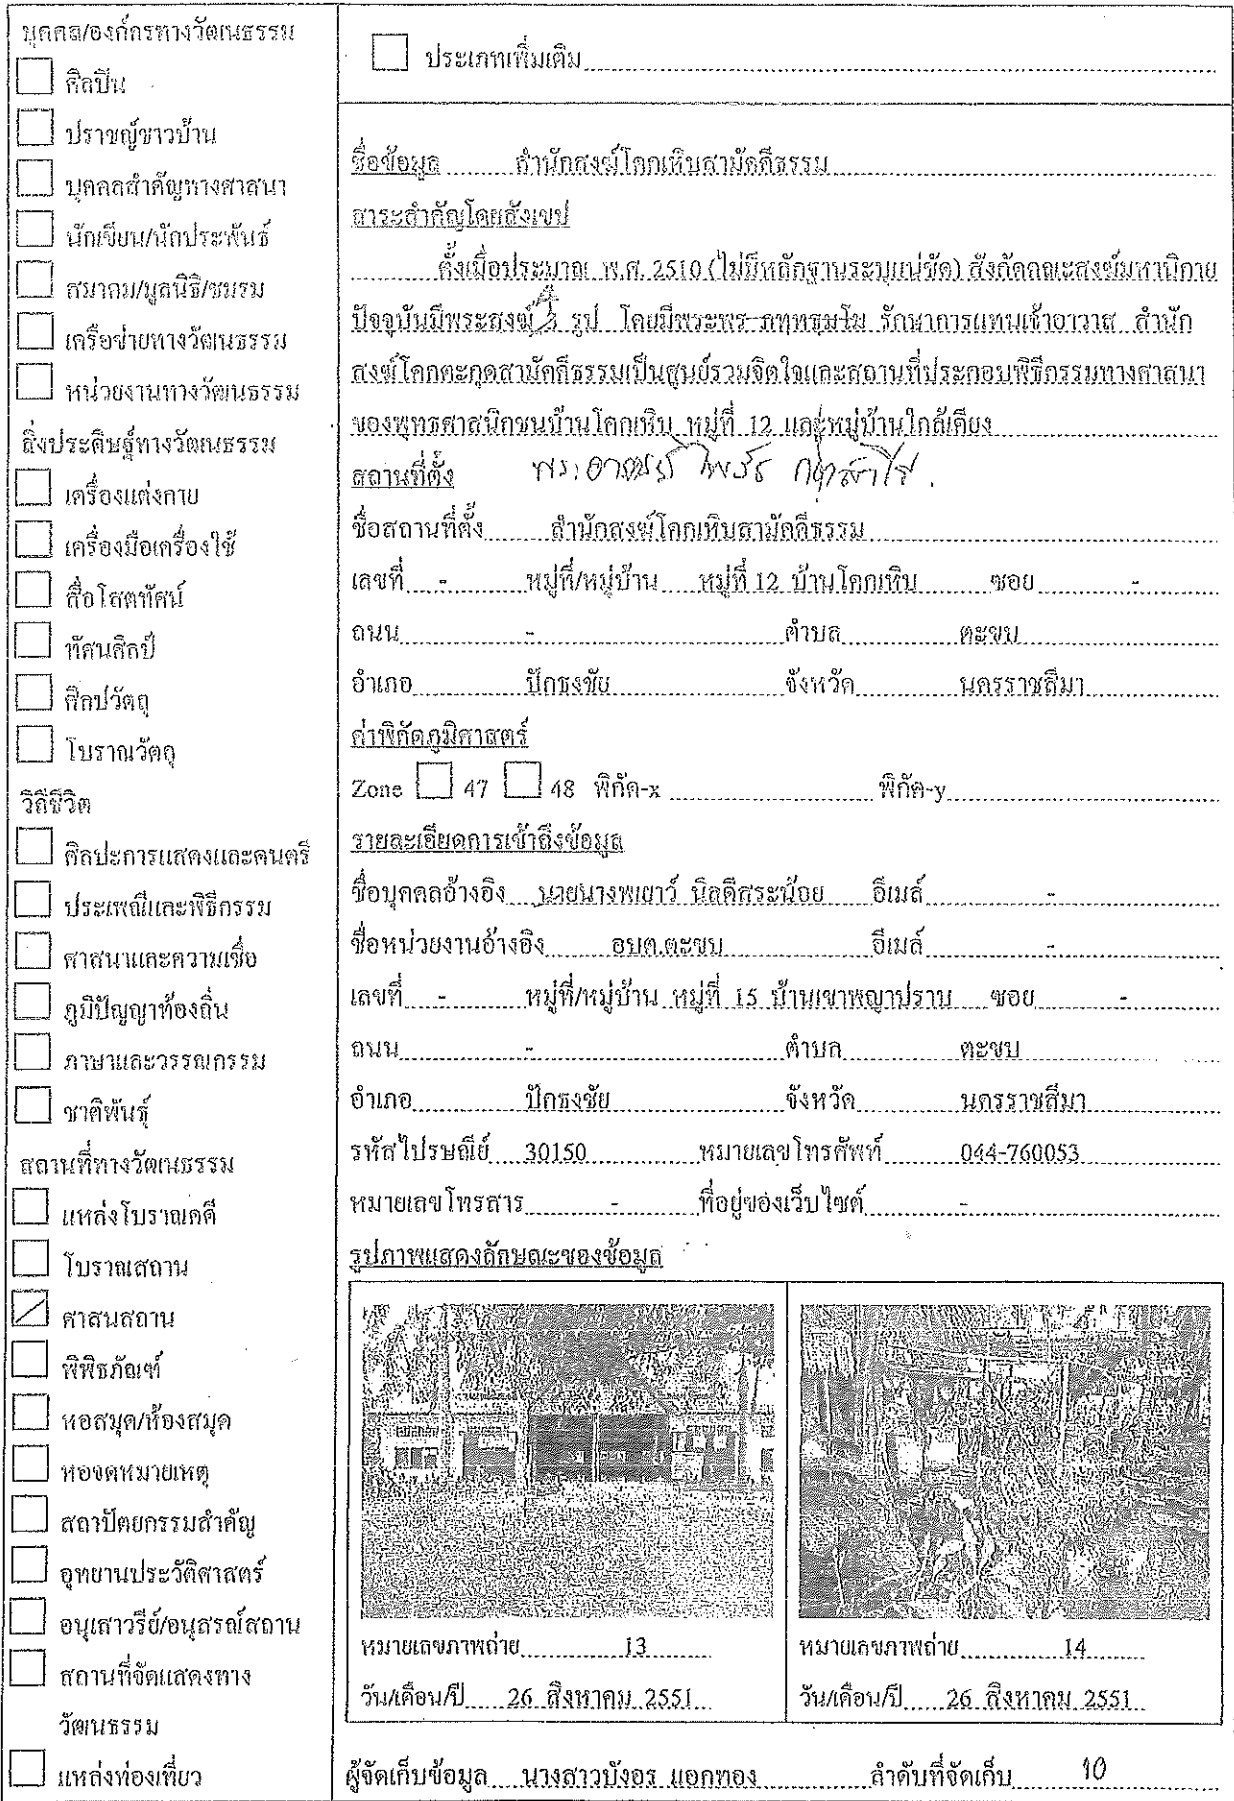 บุคคล/องค์กรทางวัฒนธรรม
ศิลปิน
ปราชญ์ชาวบ้าน
บุคคลสำคัญทางศาสนา
นักเขียน/นักประพันธ์
สมาคม/มูลนิธิ/ชมรม
เครือข่ายทางวัฒนธรรม
หน่วยงานทางวัฒนธรรม
สิ่งประดิษฐ์ทางวัฒนธรรม
เครื่องแต่งกาย
เครื่องมือเครื่องใช้
สื่อโสตทัศน์
ทัศนศิลป์
ศิลปวัตถุ
โบราณวัตถุ
วิถีชีวิต
ศิลปะการแสดงและดนตรี
ประเพณีและพิธีกรรม
ศาสนาและความเชื่อ
ภูมิปัญญาท้องถิ่น
ภาษาและวรรณกรรม
ชาติพันธุ์
สถานที่ทางวัฒนธรรม
แหล่งโบราณคดี
โบราณสถาน
ศาสนสถาน
พิพิธภัณฑ์
หอสมุด/ห้องสมุด
หอจดหมายเหตุ
สถาปัตยกรรมสำคัญ
อุทยานประวัติศาสตร์
อนุเสาวรีย์/อนุสรณ์สถาน
สถานที่จัดแสดงทาง
วัฒนธรรม
แหล่งท่องเที่ยว
ประเภทเพิ่มเติม
ชื่อข้อมูล สำนักสงฆ์โคกเหิบสามัคคีธรรม
สาระสำคัญโดยสังเขป
ตั้งเมื่อประมาณ พ.ศ. 2510 (ไม่มีหลักฐานระบุแน่ชัด) สังกัดคณะสงฆ์มหานิกาย
ปัจจุบันมีพระสงฆ์ 3 รูป โดยมีพระพร ภทฺทธมฺโม รักษาการแทนเจ้าอาวาส สำนัก
สงฆ์โคกตะกุดสามัคคีธรรมเป็นศูนย์รวมจิตใจและสถานที่ประกอบพิธีกรรมทางศาสนา
ของพุทธศาสนิกชนบ้านโคกเหิบ หมู่ที่ 12 และหมู่บ้านใกล้เคียง
สถานที่ตั้ง พระอาจารย์
ชื่อสถานที่ตั้ง สำนักสงฆ์โคกเหิบสามัคคีธรรม
เลขที่ - หมู่ที่/หมู่บ้าน หมู่ที่ 12 บ้านโคกเหิบ ซอย -
ถนน - ตำบล ตะขบ
อำเภอ ปักธงชัย จังหวัด นครราชสีมา
ค่าพิกัดภูมิศาสตร์
Zone 47 48 พิกัด-x พิกัด-y
รายละเอียดการเข้าถึงข้อมูล
ชื่อบุคคลอ้างอิง นายนางพเยาว์ นิลดีสระน้อย อีเมล์ -
ชื่อหน่วยงานอ้างอิง อบต.ตะขบ อีเมล์ -
เลขที่ - หมู่ที่/หมู่บ้าน หมู่ที่ 15 บ้านเขาพญาปราบ ซอย -
ถนน - ตำบล ตะขบ
อำเภอ ปักธงชัย จังหวัด นครราชสีมา
รหัสไปรษณีย์ 30150 หมายเลขโทรศัพท์ 044-760053
หมายเลขโทรสาร - ที่อยู่ของเว็บไซต์ -
รูปภาพแสดงลักษณะของข้อมูล
หมายเลขภาพถ่าย 13
วัน/เดือน/ปี 26 สิงหาคม 2551
หมายเลขภาพถ่าย 14
วัน/เดือน/ปี 26 สิงหาคม 2551
ผู้จัดเก็บข้อมูล นางสาวบังอร แอกทอง ลำดับที่จัดเก็บ 10